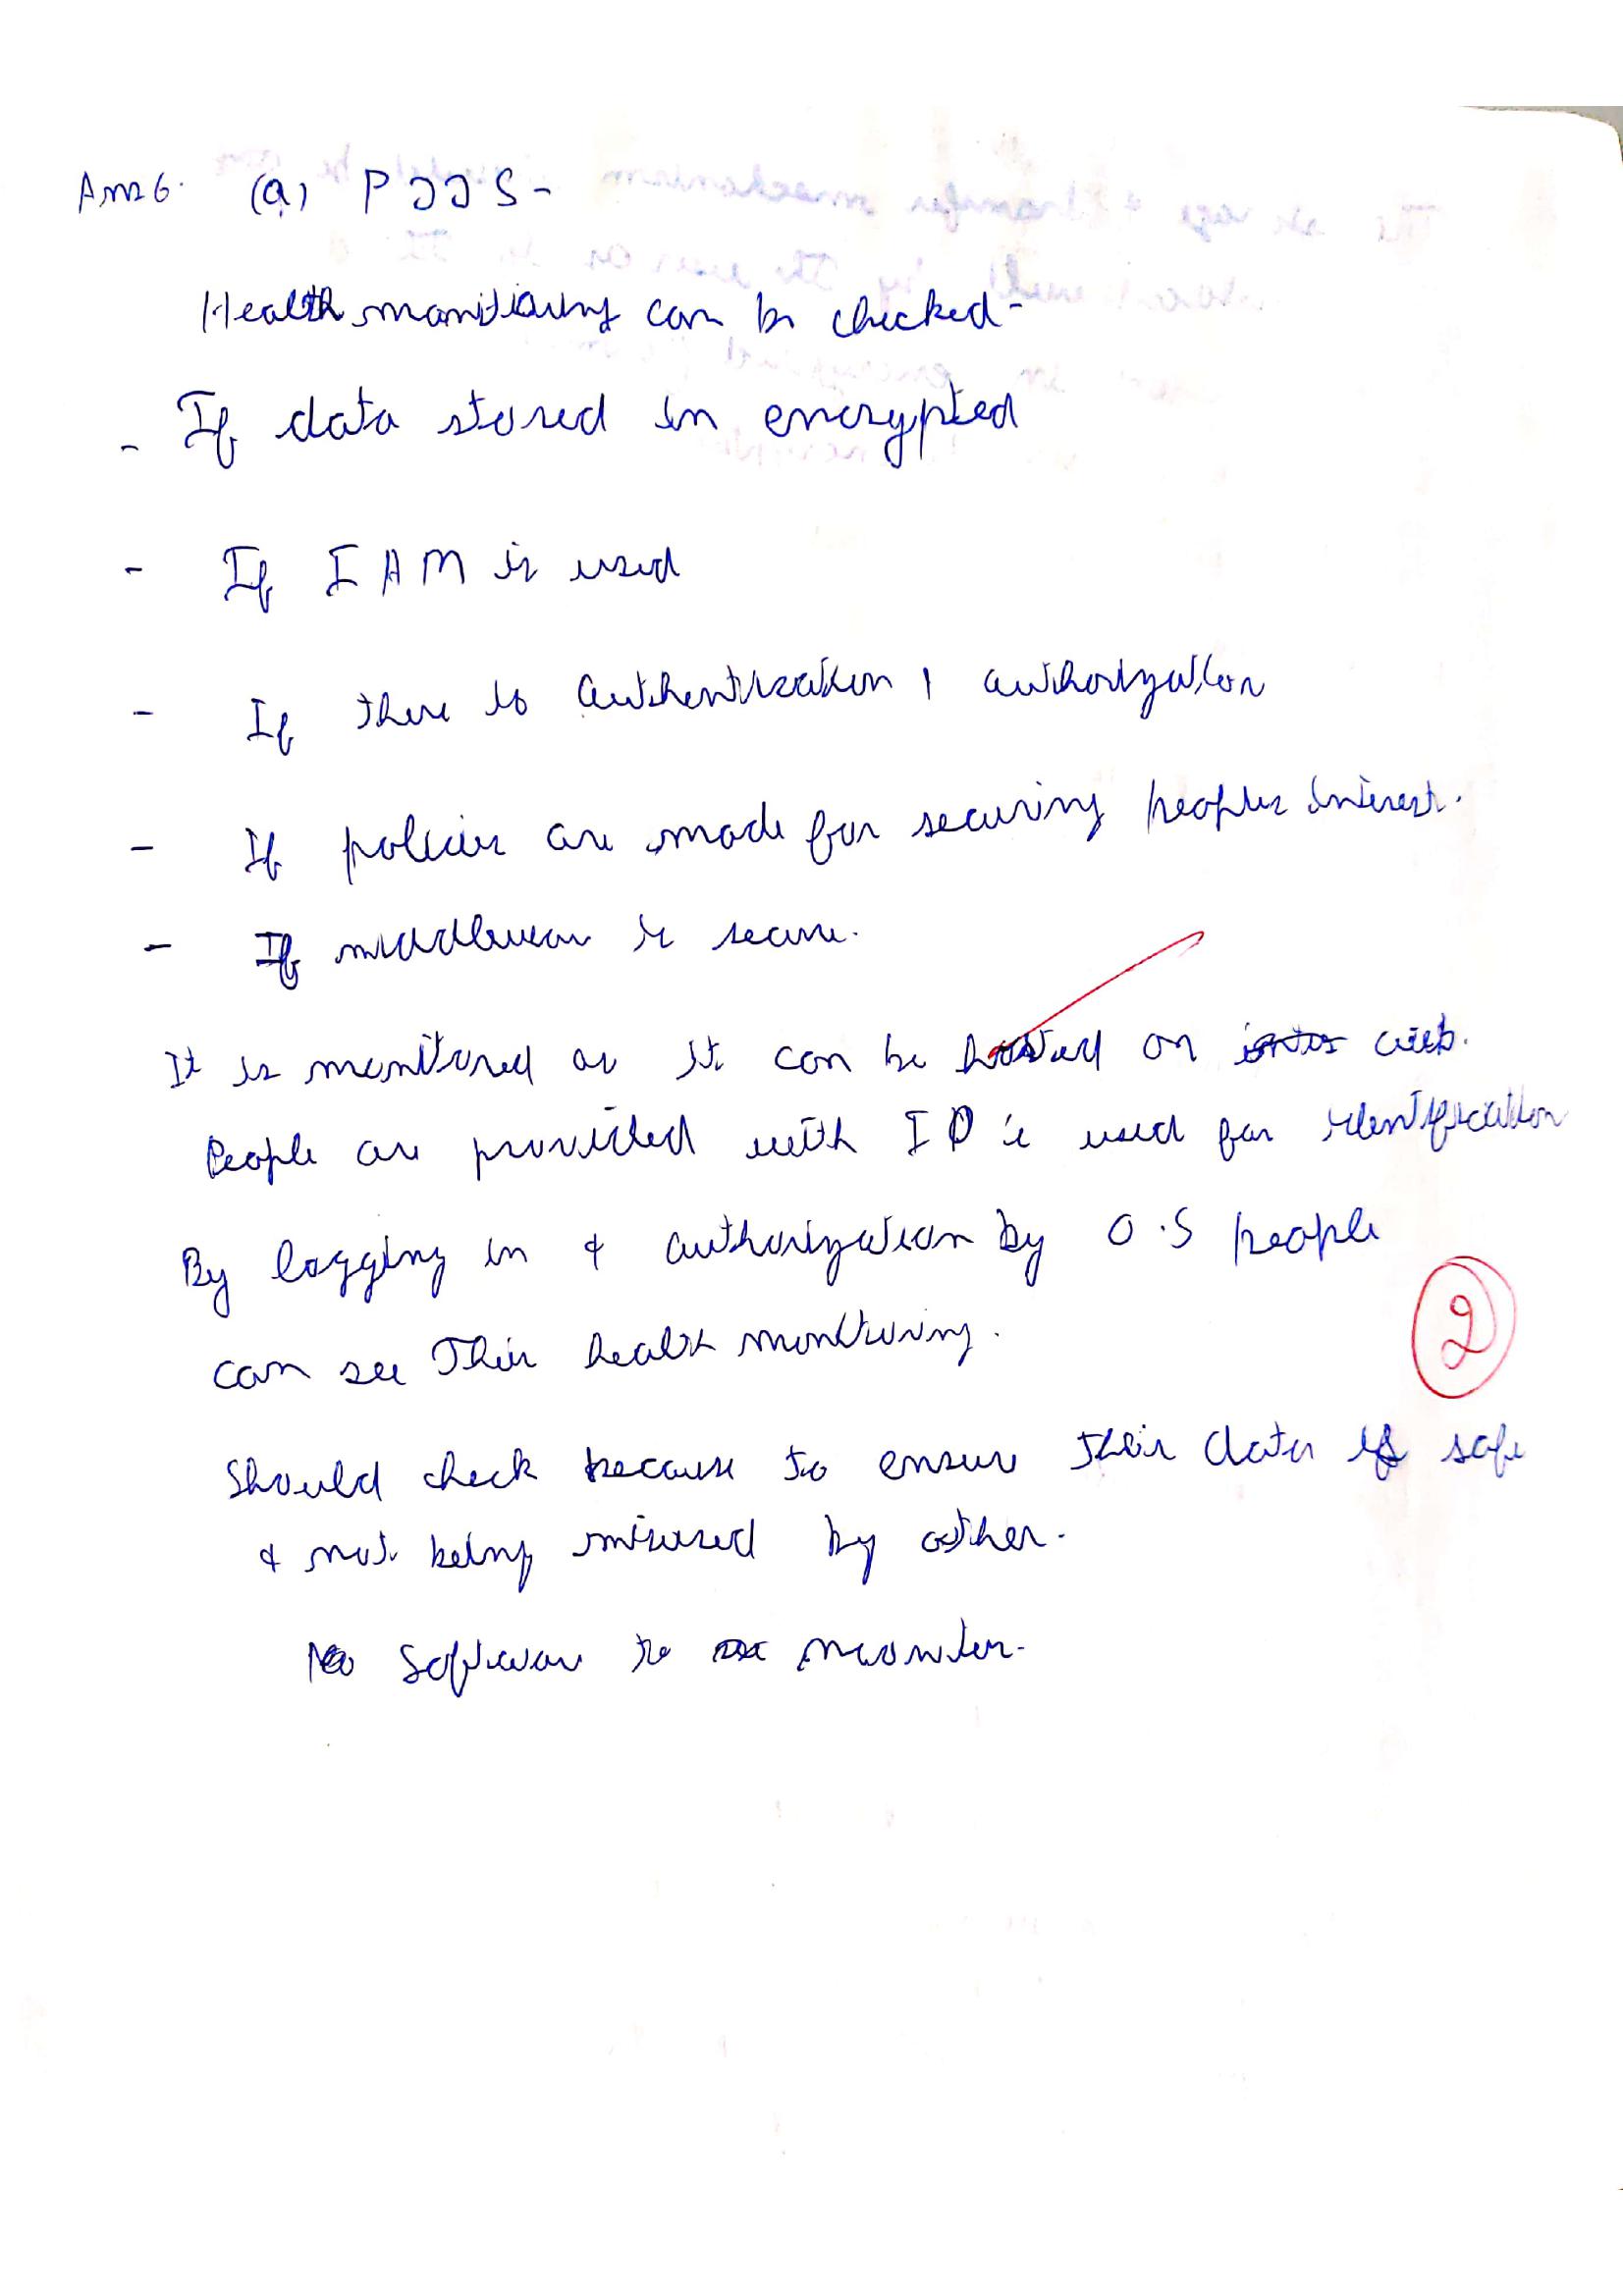 Ans 6. (a) PJJS -
Health monitoring can be checked -
- If data stored in encrypted
- If IAM is used
- If there is authentication, authorization
- If policies are made for securing peoples interest.
- If middleware is secure.
It is monitored as it can be hosted on web.
People are provided with ID is used for identification
By logging in & authorization by O.S people
can see their health monitoring.
2
Should check because to ensure their data is safe
& not being misused by other.
Software to monitor.